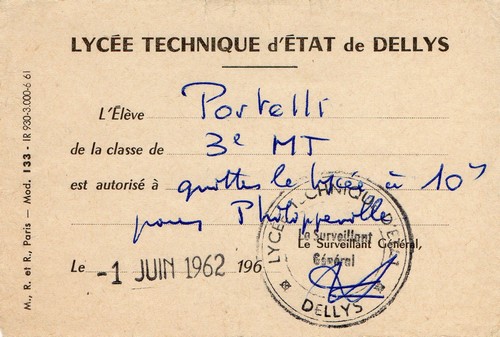 LYCÉE TECHNIQUE d'ÉTAT de DELLYS
L'Élève Portelli
de la classe de 3e MT
est autorisé à quitter le lycée à 10h
pour Philippeville
Le Surveillant Général,
Le -1 JUIN 1962 196
LYCÉE TECHNIQUE D'ÉTAT
Le Surveillant
Général
DELLYS
M., R. et R., Paris — Mod. 133 - IR 930-3.000-6 61